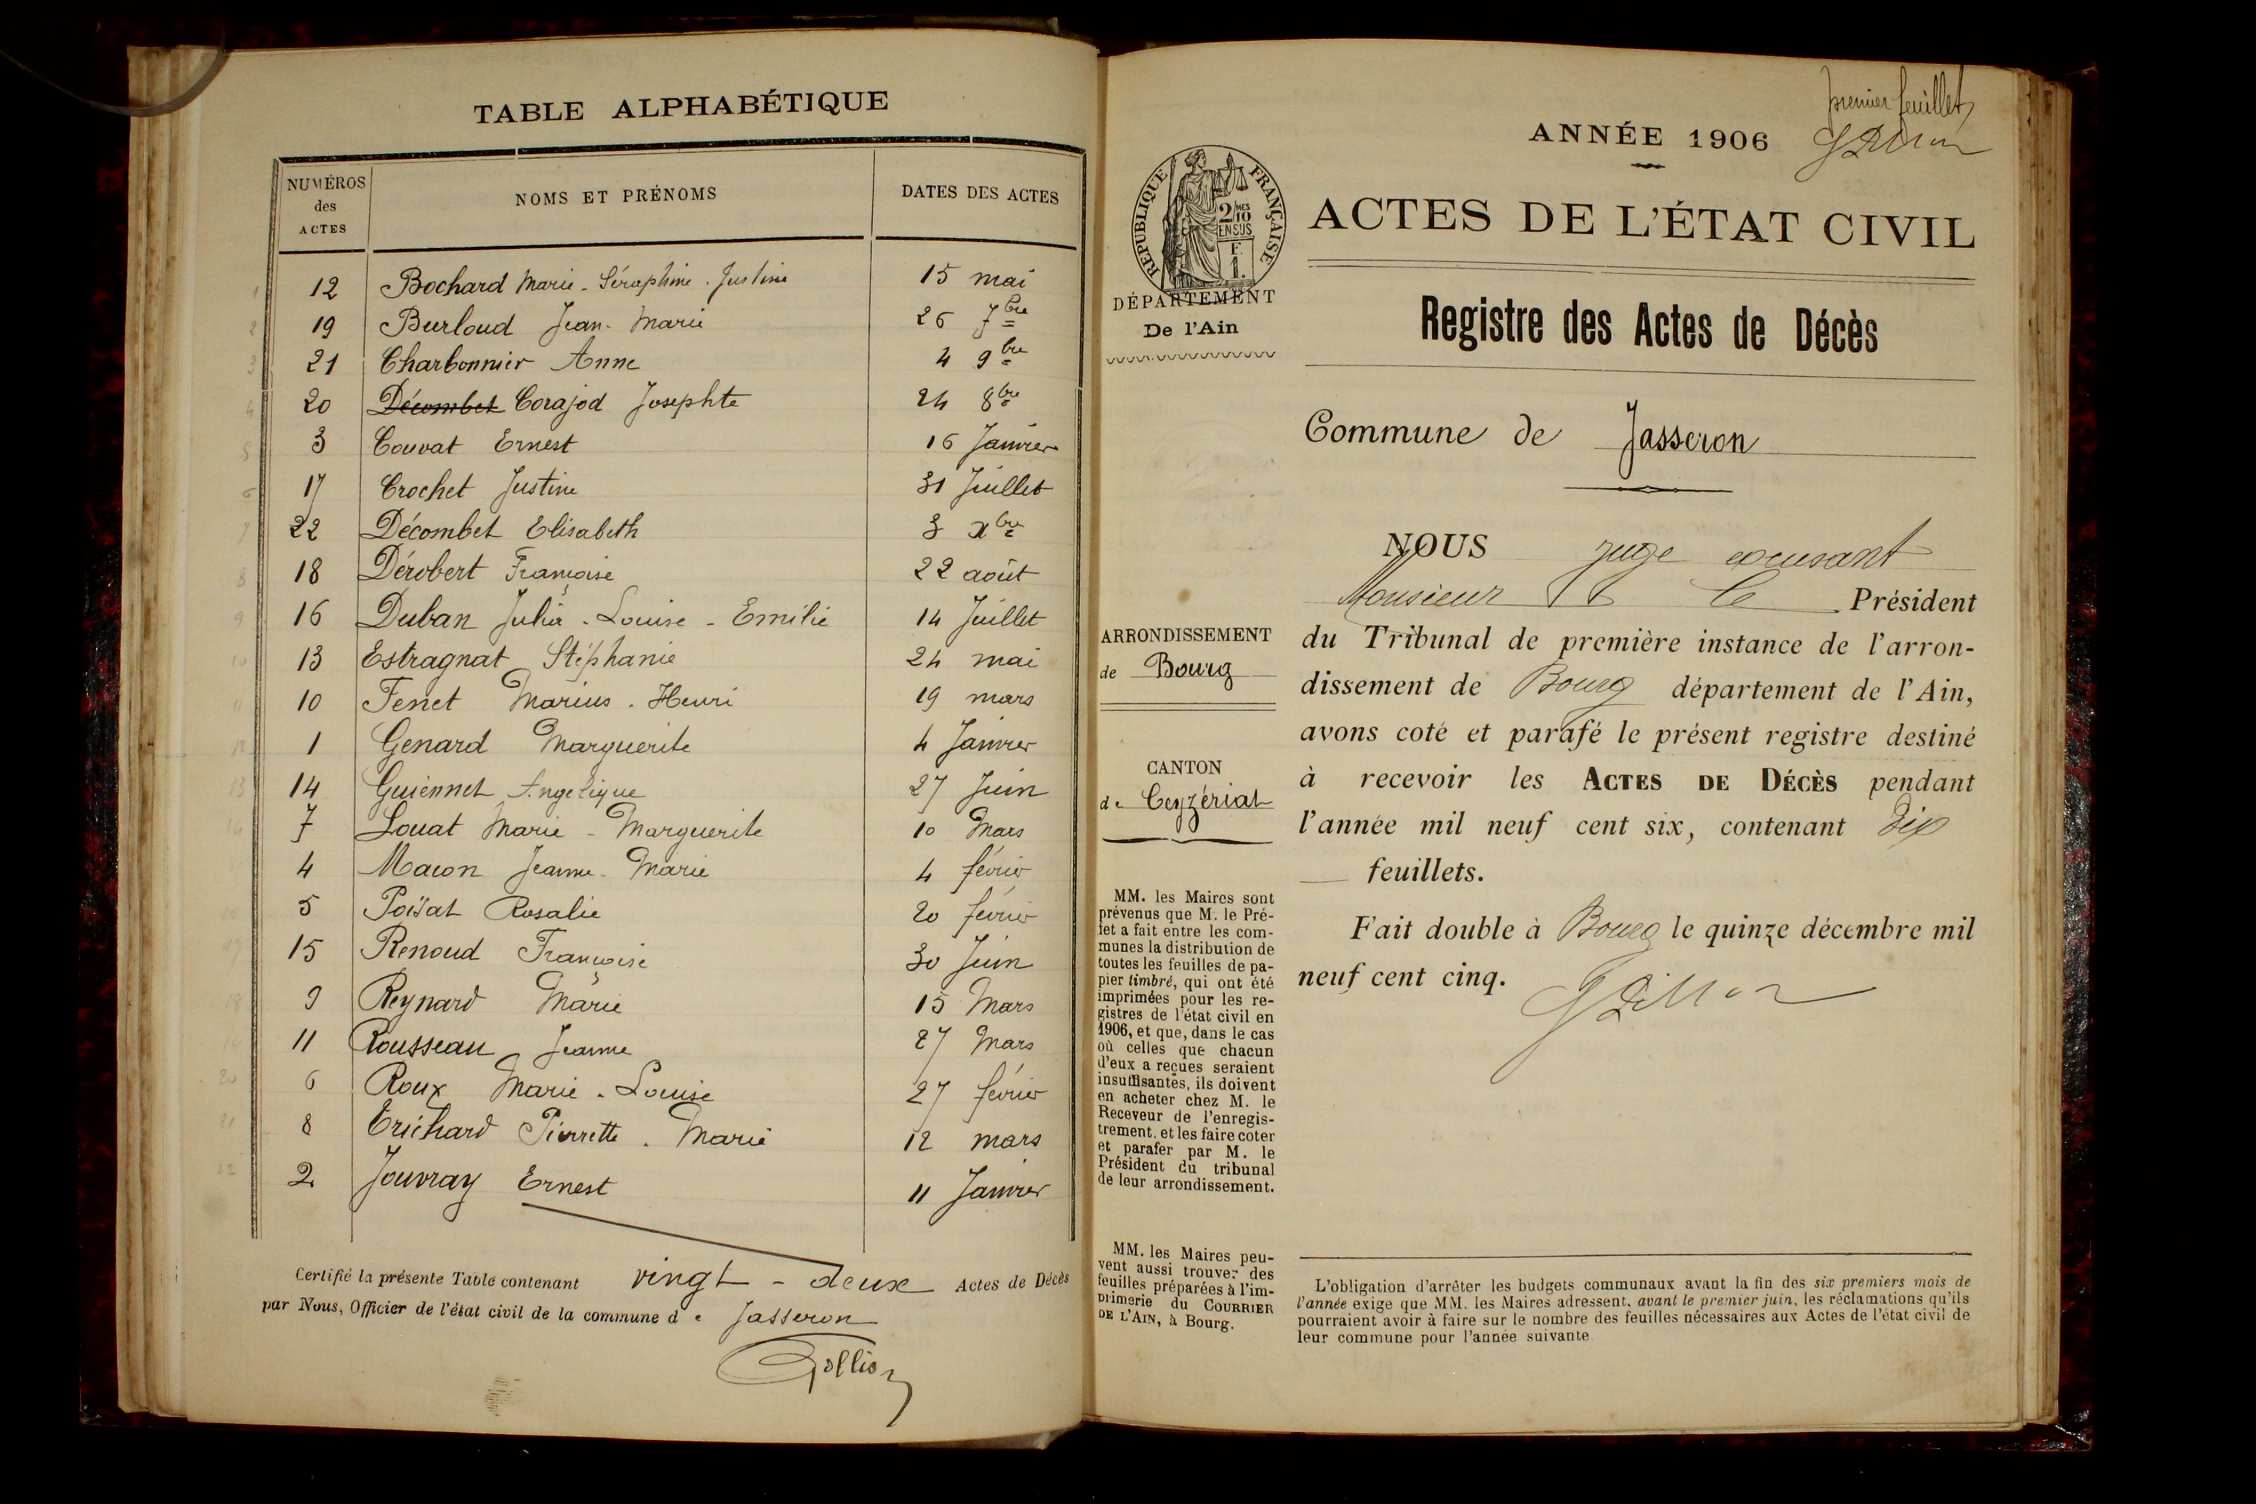 TABLE ALPHABÉTIQUE
NUMÉROS des ACTES NOMS ET PRÉNOMS DATES DES ACTES
12 Bochard Marie - Séraphine . Justine 15 mai
19 Burloud Jean - Marie 26 7bre
21 Charbonnier Anne 4 9bre
20 Décombet Corajod Josephte 24 8bre
3 Couvat Ernest 16 Janvier
17 Crochet Justine 31 Juillet
22 Décombet Elisabeth 3 Xbre
18 Dérobert Françoise 22 août
16 Duban Julia - Louise - Emilie 14 Juillet
13 Estragnat Stéphanie 24 mai
10 Fenet Marius . Henri 19 mars
1 Genard Marguerite 4 Janvier
14 Guiennet Angelique 27 Juin
7 Louat Marie - Marguerite 10 Mars
4 Macon Jeanne - Marie 4 février
5 Poisat Rosalie 20 février
15 Renoud Françoise 30 Juin
9 Reynard Marie 15 Mars
11 Rousseau Jeanne 27 Mars
6 Roux Marie - Louise 27 février
8 Trichard Pierrette . Marie 12 mars
2 Jouvray Ernest 11 Janvier
Certifié la présente Table contenant vingt - deux Actes de Décès
par Nous, Officier de l'état civil de la commune de Jasseron
premier feuillet
ANNÉE 1906
RÉPUBLIQUE FRANÇAISE
2/10 MES
EN SUS
F.
1.
ACTES DE L'ÉTAT CIVIL
DÉPARTEMENT
De l'Ain
Registre des Actes de Décès
Commune de Jasseron
ARRONDISSEMENT
de Bourg
CANTON
de Ceyzériat
MM. les Maires sont
prévenus que M. le Pré-
fet a fait entre les com-
munes la distribution de
toutes les feuilles de pa-
pier timbré, qui ont été
imprimées pour les re-
gistres de l'état civil en
1906, et que, dans le cas
où celles que chacun
d'eux a reçues seraient
insuffisantes, ils doivent
en acheter chez M. le
Receveur de l'enregis-
trement, et les faire coter
et parafer par M. le
Président du tribunal
de leur arrondissement.
MM. les Maires peu-
vent aussi trouver des
feuilles préparées à l'im-
primerie du COURRIER
DE L'AIN, à Bourg.
NOUS juge
Monsieur le Président
du Tribunal de première instance de l'arron-
dissement de Bourg département de l'Ain,
avons coté et parafé le présent registre destiné
à recevoir les ACTES DE DÉCÈS pendant
l'année mil neuf cent six, contenant dix
feuillets.
Fait double à Bourg le quinze décembre mil
neuf cent cinq.
L'obligation d'arrêter les budgets communaux avant la fin des six premiers mois de
l'année exige que MM. les Maires adressent, avant le premier juin, les réclamations qu'ils
pourraient avoir à faire sur le nombre des feuilles nécessaires aux Actes de l'état civil de
leur commune pour l'année suivante